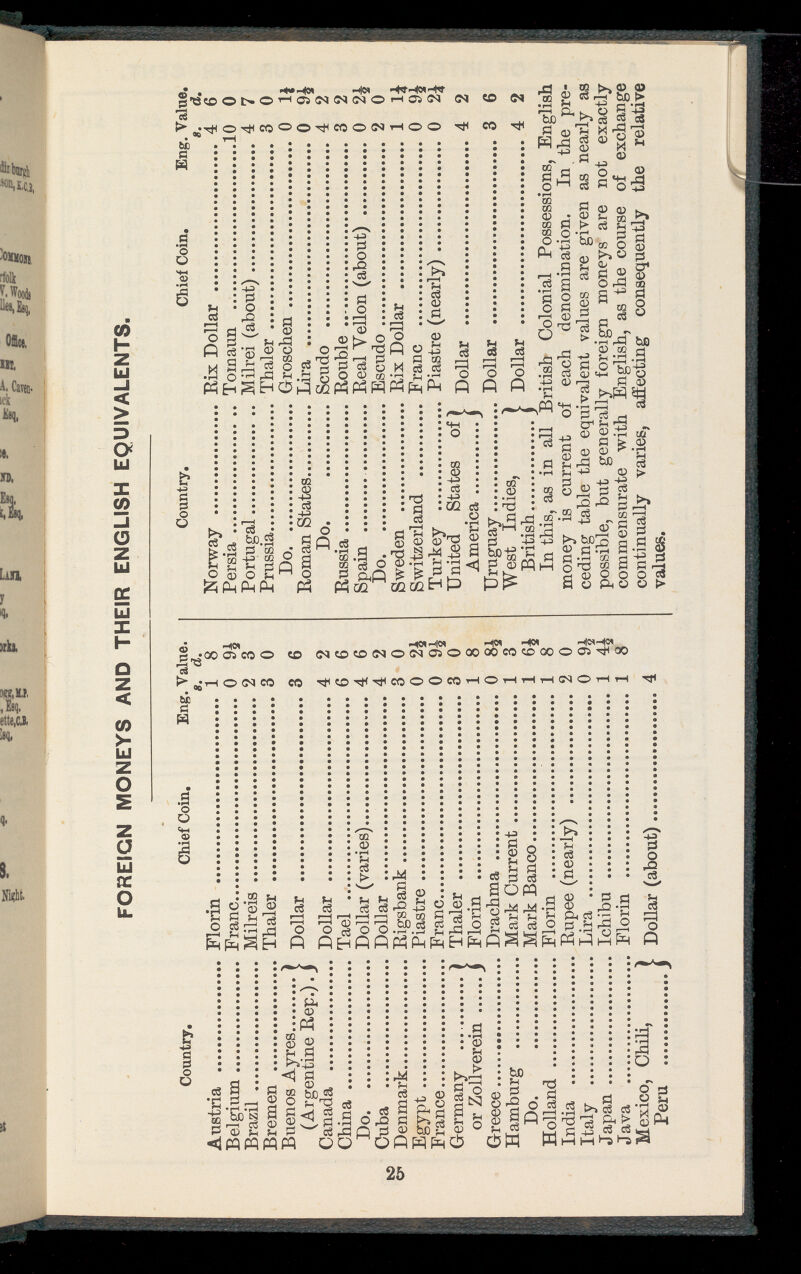 FOREIGN MONEYS AND THEIR ENGLISH EQUIVALENTS.
Country. Chief Coin. Eng. Value.
s. d.
Austria ........ Florin ........ 1 8
Belgium ........ Franc ........ 0 9½
Brazil ........ Milreis ........ 2 3
Bremen ........ Thaler ........ 3 0
Buenos Ayres ........ }
(Argentine Rep.). } Dollar ........ 3 6
Canada ........ Dollar ........ 4 2
China ........ Tael ........ 6 6
Do. ........ Dollar (varies) ........ 4 6
Cuba ........ Dollar ........ 4 2
Denmark ........ Rigsbank ........ 3 0
Egypt ........ Piastre ........ 0 2½
France ........ Franc ........ 0 9½
Germany ........ } Thaler ........ 3 0
or Zollverein ...... } Florin ........ 1 8
Greece ........ Drachma ........ 0 8½
Hamburg ........ Mark Current ........ 1 3
Do. ........ Mark Banco ........ 1 6½
Holland ........ Florin ........ 1 8
India ........ Rupee (nearly) ........ 2 0
Italy ........ Lira ........ 0 9½
Japan ........ Ichibu ........ 1 4½
Java ........ Florin ........ 1 8
Mexico, Chili, }
Peru ........ } Dollar (about) ........ 4
Country. Chief Coin. Eng. Value.
s. d.
Norway ........ Rix Dollar ........ 4 6
Persia ........ Tomaun ........ 10 0
Portugal ........ Milrei (about) ........ 4 7
Prussia ........ Thaler ........ 3 0
Do. ........ Groschen ........ 0 1¼
Roman States ........ Lira ........ 0 9½
Do. ........ Scudo ........ 4 2
Russia ........ Rouble ........ 3 2
Spain ........ Real Vellon (about) ........ 0 2½
Do. ........ Escudo ........ 2 0
Sweden ........ Rix Dollar ........ 1 1¼
Switzerland ........ Franc ........ 0 9½
Turkey ........ Piastre (nearly) ........ 0 2¼
United States of }
America ........ } Dollar ........ 4 2
Uruguay ........ Dollar ........ 3 6
West Indies, }
British ........ } Dollar ........ 4 2
In this, as in all British Colonial Possessions, English
money is current of each denomination. In the pre-
ceding table the equivalent values are given as nearly as
possible, but generally foreign moneys are not exactly
commensurate with English, as the course of exchange
continually varies, affecting consequently the relative
values.
25